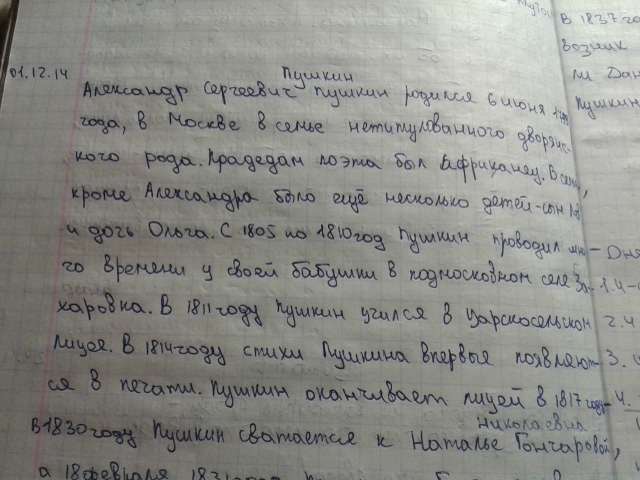 01.12.14
Пушкин
Александр Сергеевич Пушкин родился 6 июня
года, в Москве в семье нетитулованного дворянс
кого рода. Прадедом поэта был африканец. В семье,
кроме Александра было ещё несколько детей - сын
и дочь Ольга. С 1805 по 1810 год Пушкин проводил
го времени у своей бабушки в подмосковном селе За
харовка. В 1811 году Пушкин учился в Царскосельском
лицее в 1814 году стихи Пушкина впервые появляют
ся в печати. Пушкин оканчивает лицей в 1817 году
Николаевна
в 1830 году Пушкин сватается к Наталье Гончаровой,
а 18 февраля 1831
в 1837 го
возник
Пушки